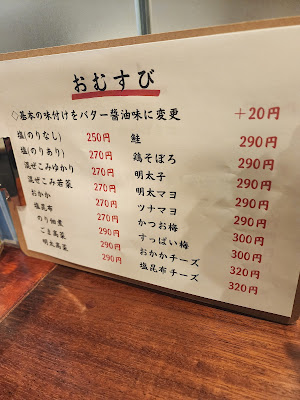 おむすび
◇基本の味付けをバター醤油味に変更 +20円
塩(のりなし) 250円
塩(のりあり) 270円
混ぜこみゆかり 270円
混ぜこみ若菜 270円
おかか 270円
塩昆布 270円
のり佃煮 270円
ごま高菜 290円
明太高菜 290円
鮭 290円
鶏そぼろ 290円
明太子 290円
明太マヨ 290円
ツナマヨ 290円
かつお梅 290円
すっぱい梅 300円
おかかチーズ 300円
塩昆布チーズ 320円
320円